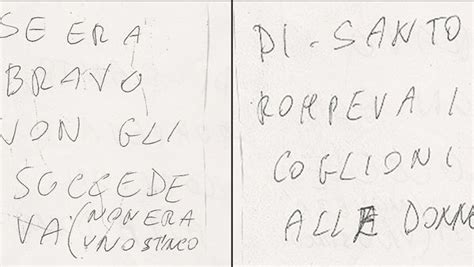 SE ERA
BRAVO
NON GLI
SUCCEDE
VA (NON ERA
UNO STINCO
DI - SANTO
ROMPEVA I
COGLIONI
ALLE DONNE